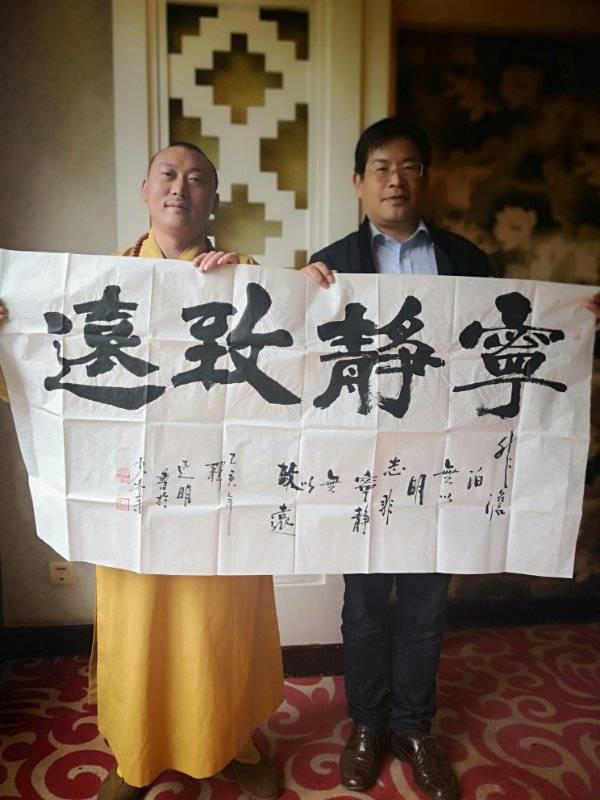 寧靜致遠
非澹
泊
無以
明
志非
寧靜
無
以
致遠
己亥年
釋
延明
書於
少林寺